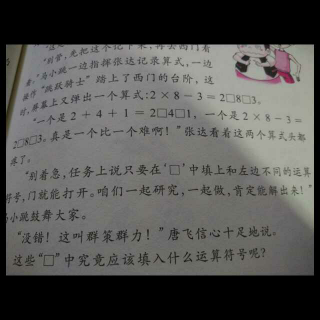 "别管，先把这个记下来，再去西门看
"马小跳一边指挥张达记录算式，一边
操作"跳跃骑士"踏上了西门的台阶，这
时，屏幕上又弹出一个算式：2×8-3=2□8□3。
"一个是2+4+1=2□4□1，一个是2×8-3=
2□8□3，真是一个比一个难啊！"张达看着这两个算式头都
疼了。
"别着急，任务上说只要在'□'中填上和左边不同的运算
符号，门就能打开。咱们一起研究，一起做，肯定能解出来！"
马小跳鼓舞大家。
"没错！这叫群策群力！"唐飞信心十足地说。
这些"□"中究竟应该填入什么运算符号呢？